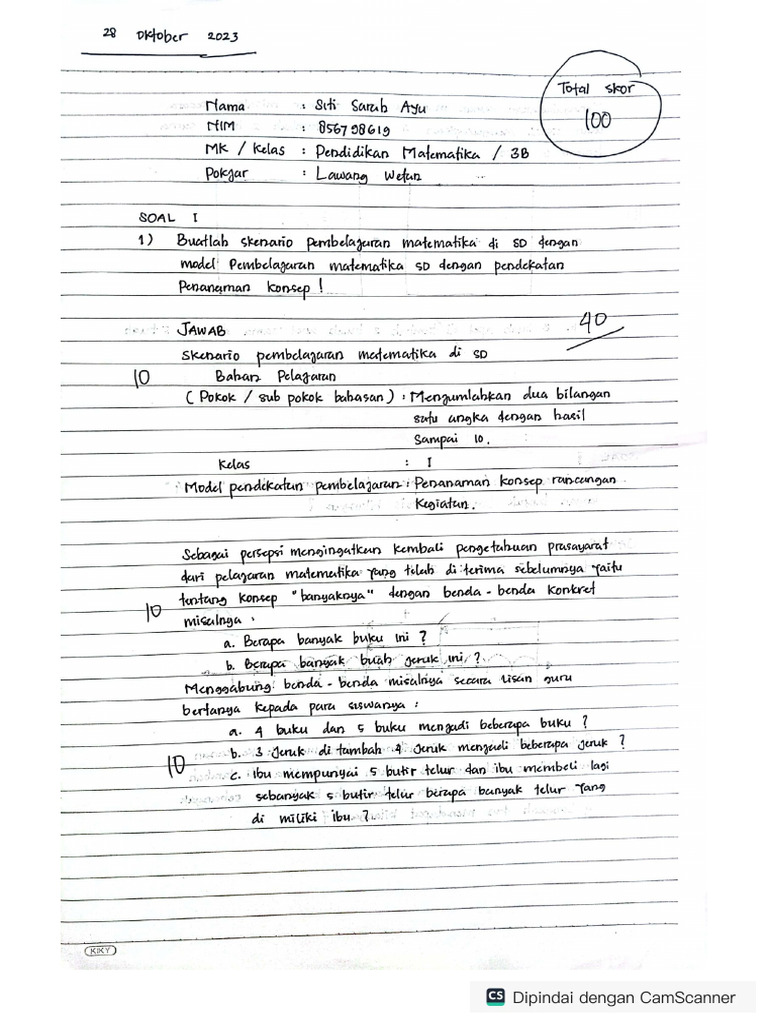 28 Oktober 2023
Total skor
100
Nama : Siti Sarah Ayu
NIM : 856798619
MK / Kelas : Pendidikan Matematika / 3B
Pokjar : Lawang Wetan
SOAL I
1) Buatlah skenario pembelajaran matematika di SD dengan
model Pembelajaran matematika SD dengan pendekatan
Penanaman konsep !
40
JAWAB
Skenario pembelajaran matematika di SD
10 Bahan Pelajaran
( Pokok / sub pokok bahasan ) : Menjumlahkan dua bilangan
satu angka dengan hasil
Sampai 10.
Kelas : I
Model pendekatan pembelajaran : Penanaman konsep rancangan
Kegiatan.
Sebagai persepsi mengingatkan kembali pengetahuan prasayarat
dari pelajaran matematika yang telah di terima sebelumnya yaitu
tentang konsep "banyaknya" dengan benda - benda konkret
10
misalnya .
a. Berapa banyak buku ini ?
b. Berapa banyak buah jeruk ini ?
Menggabung benda - benda misalnya secara lisan guru
bertanya kepada para siswanya :
a. 4 buku dan 5 buku menjadi beberapa buku ?
b. 3 Jeruk di tambah 4 Jeruk menjadi beberapa jeruk ?
10
c. Ibu mempunyai 5 butir telur dan ibu membeli lagi
sebanyak 5 butir telur berapa banyak telur yang
di miliki ibu ?
KIKY
CS Dipindai dengan CamScanner